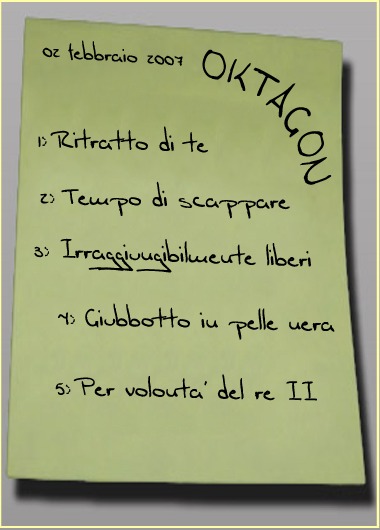 02 febbraio 2007
OKTAGON
1) Ritratto di te
2) Tempo di scappare
3) Irraggiungibilmente liberi
4) Giubbotto in pelle nera
5) Per volonta' del re II